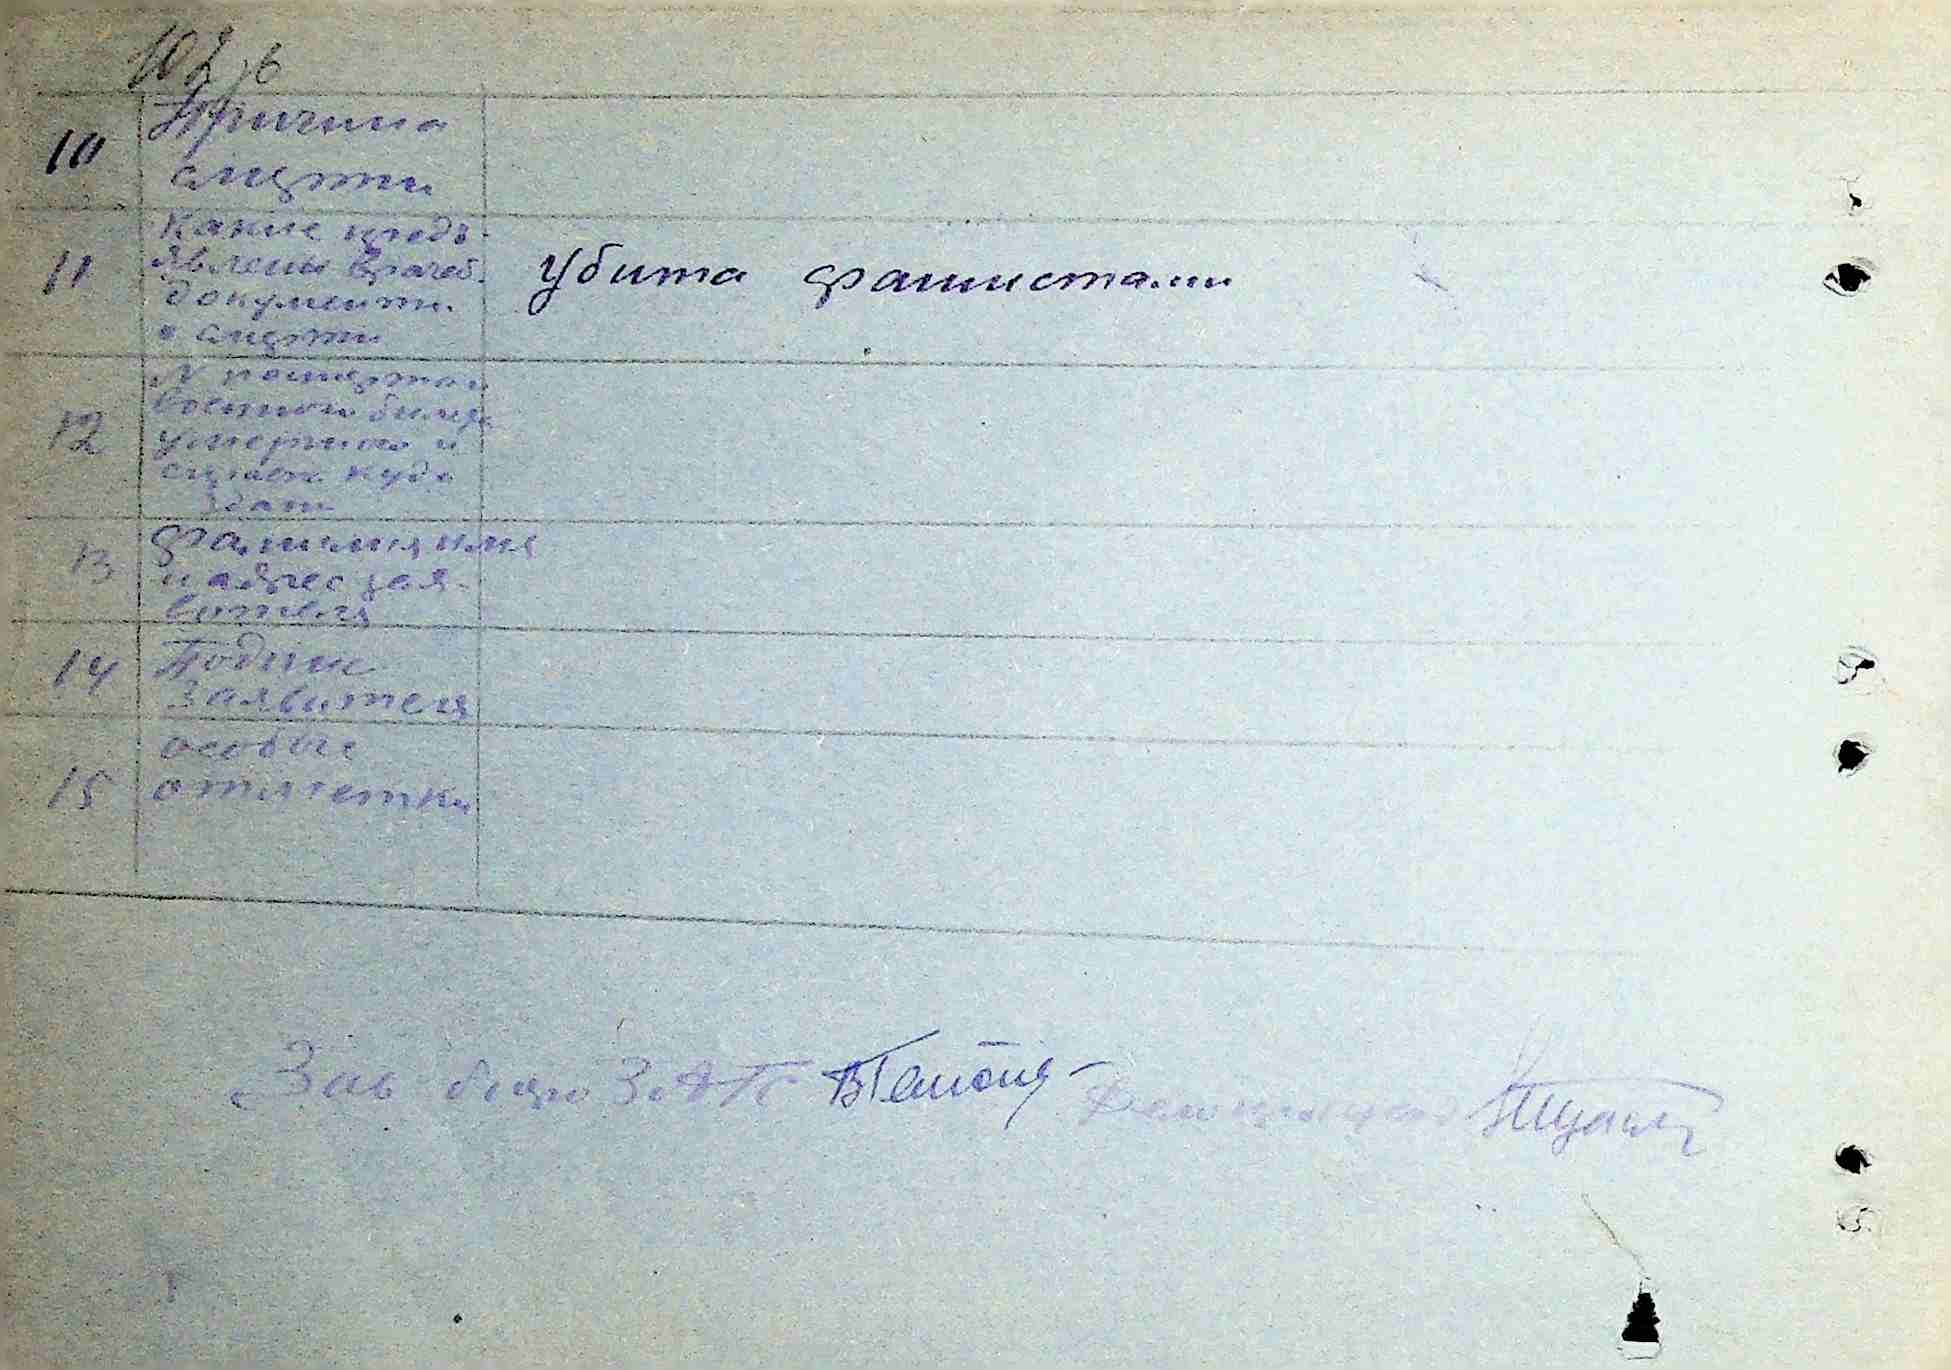 102 об
10 Причина
смерти
Какие предъ-
11 явлены врачеб.
документы
о смерти
Убита фашистами
№ паспорта и
военного билета
12 умершего и
куда
здан
13 Фамилия имя
и адрес зая-
вителя
14 Подпис
Заявителя
15 особые
отметки
Зав бюро ЗАГС